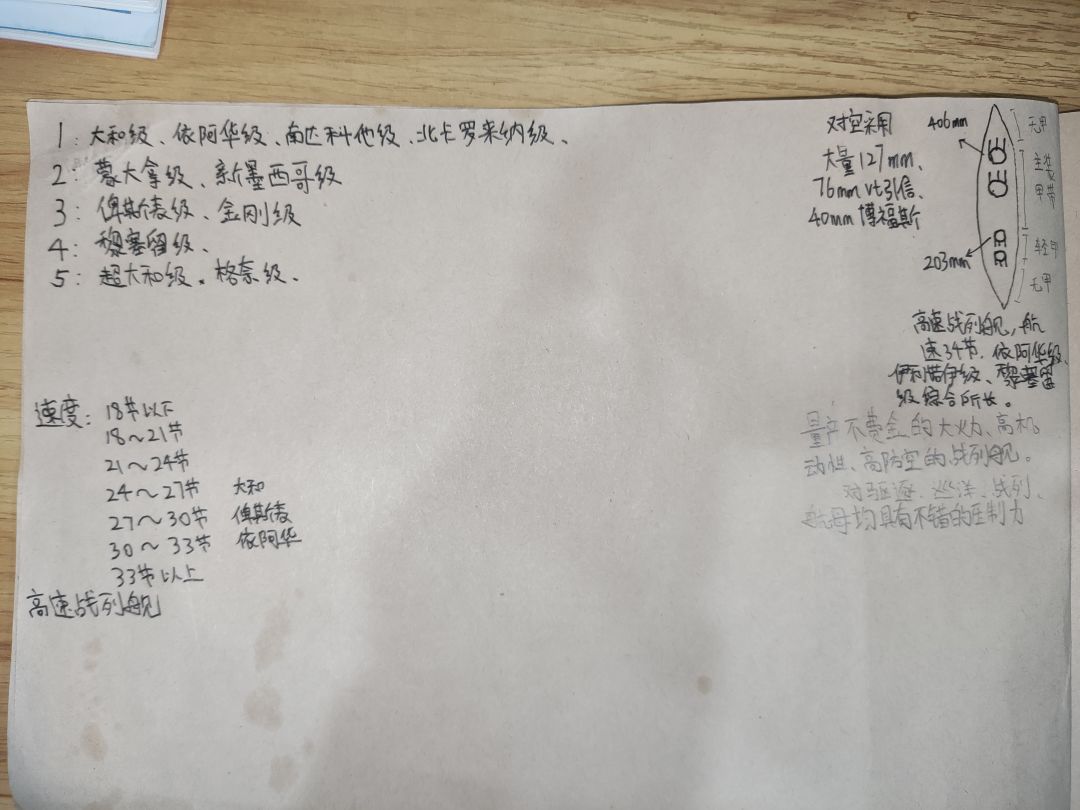 1：大和级、依阿华级、南达科他级、北卡罗来纳级、
2：蒙大拿级、新墨西哥级
3：俾斯麦级、金刚级
4：黎塞留级、
5：超大和级、格奈级、
速度：18节以下
18～21节
21～24节
24～27节 大和
27～30节 俾斯麦
30～33节 依阿华
33节以上
高速战列舰
对空采用
大量127mm、
76mm vt引信、
40mm 博福斯
406mm
203mm
无甲
主装
甲带
轻甲
无甲
高速战列舰，航
速34节，依阿华级、
伊利诺伊级、黎塞留
级综合所长。
量产不费金的大火力、高机
动性、高防空的战列舰。
对驱逐、巡洋、战列、
航母均具有不错的压制力